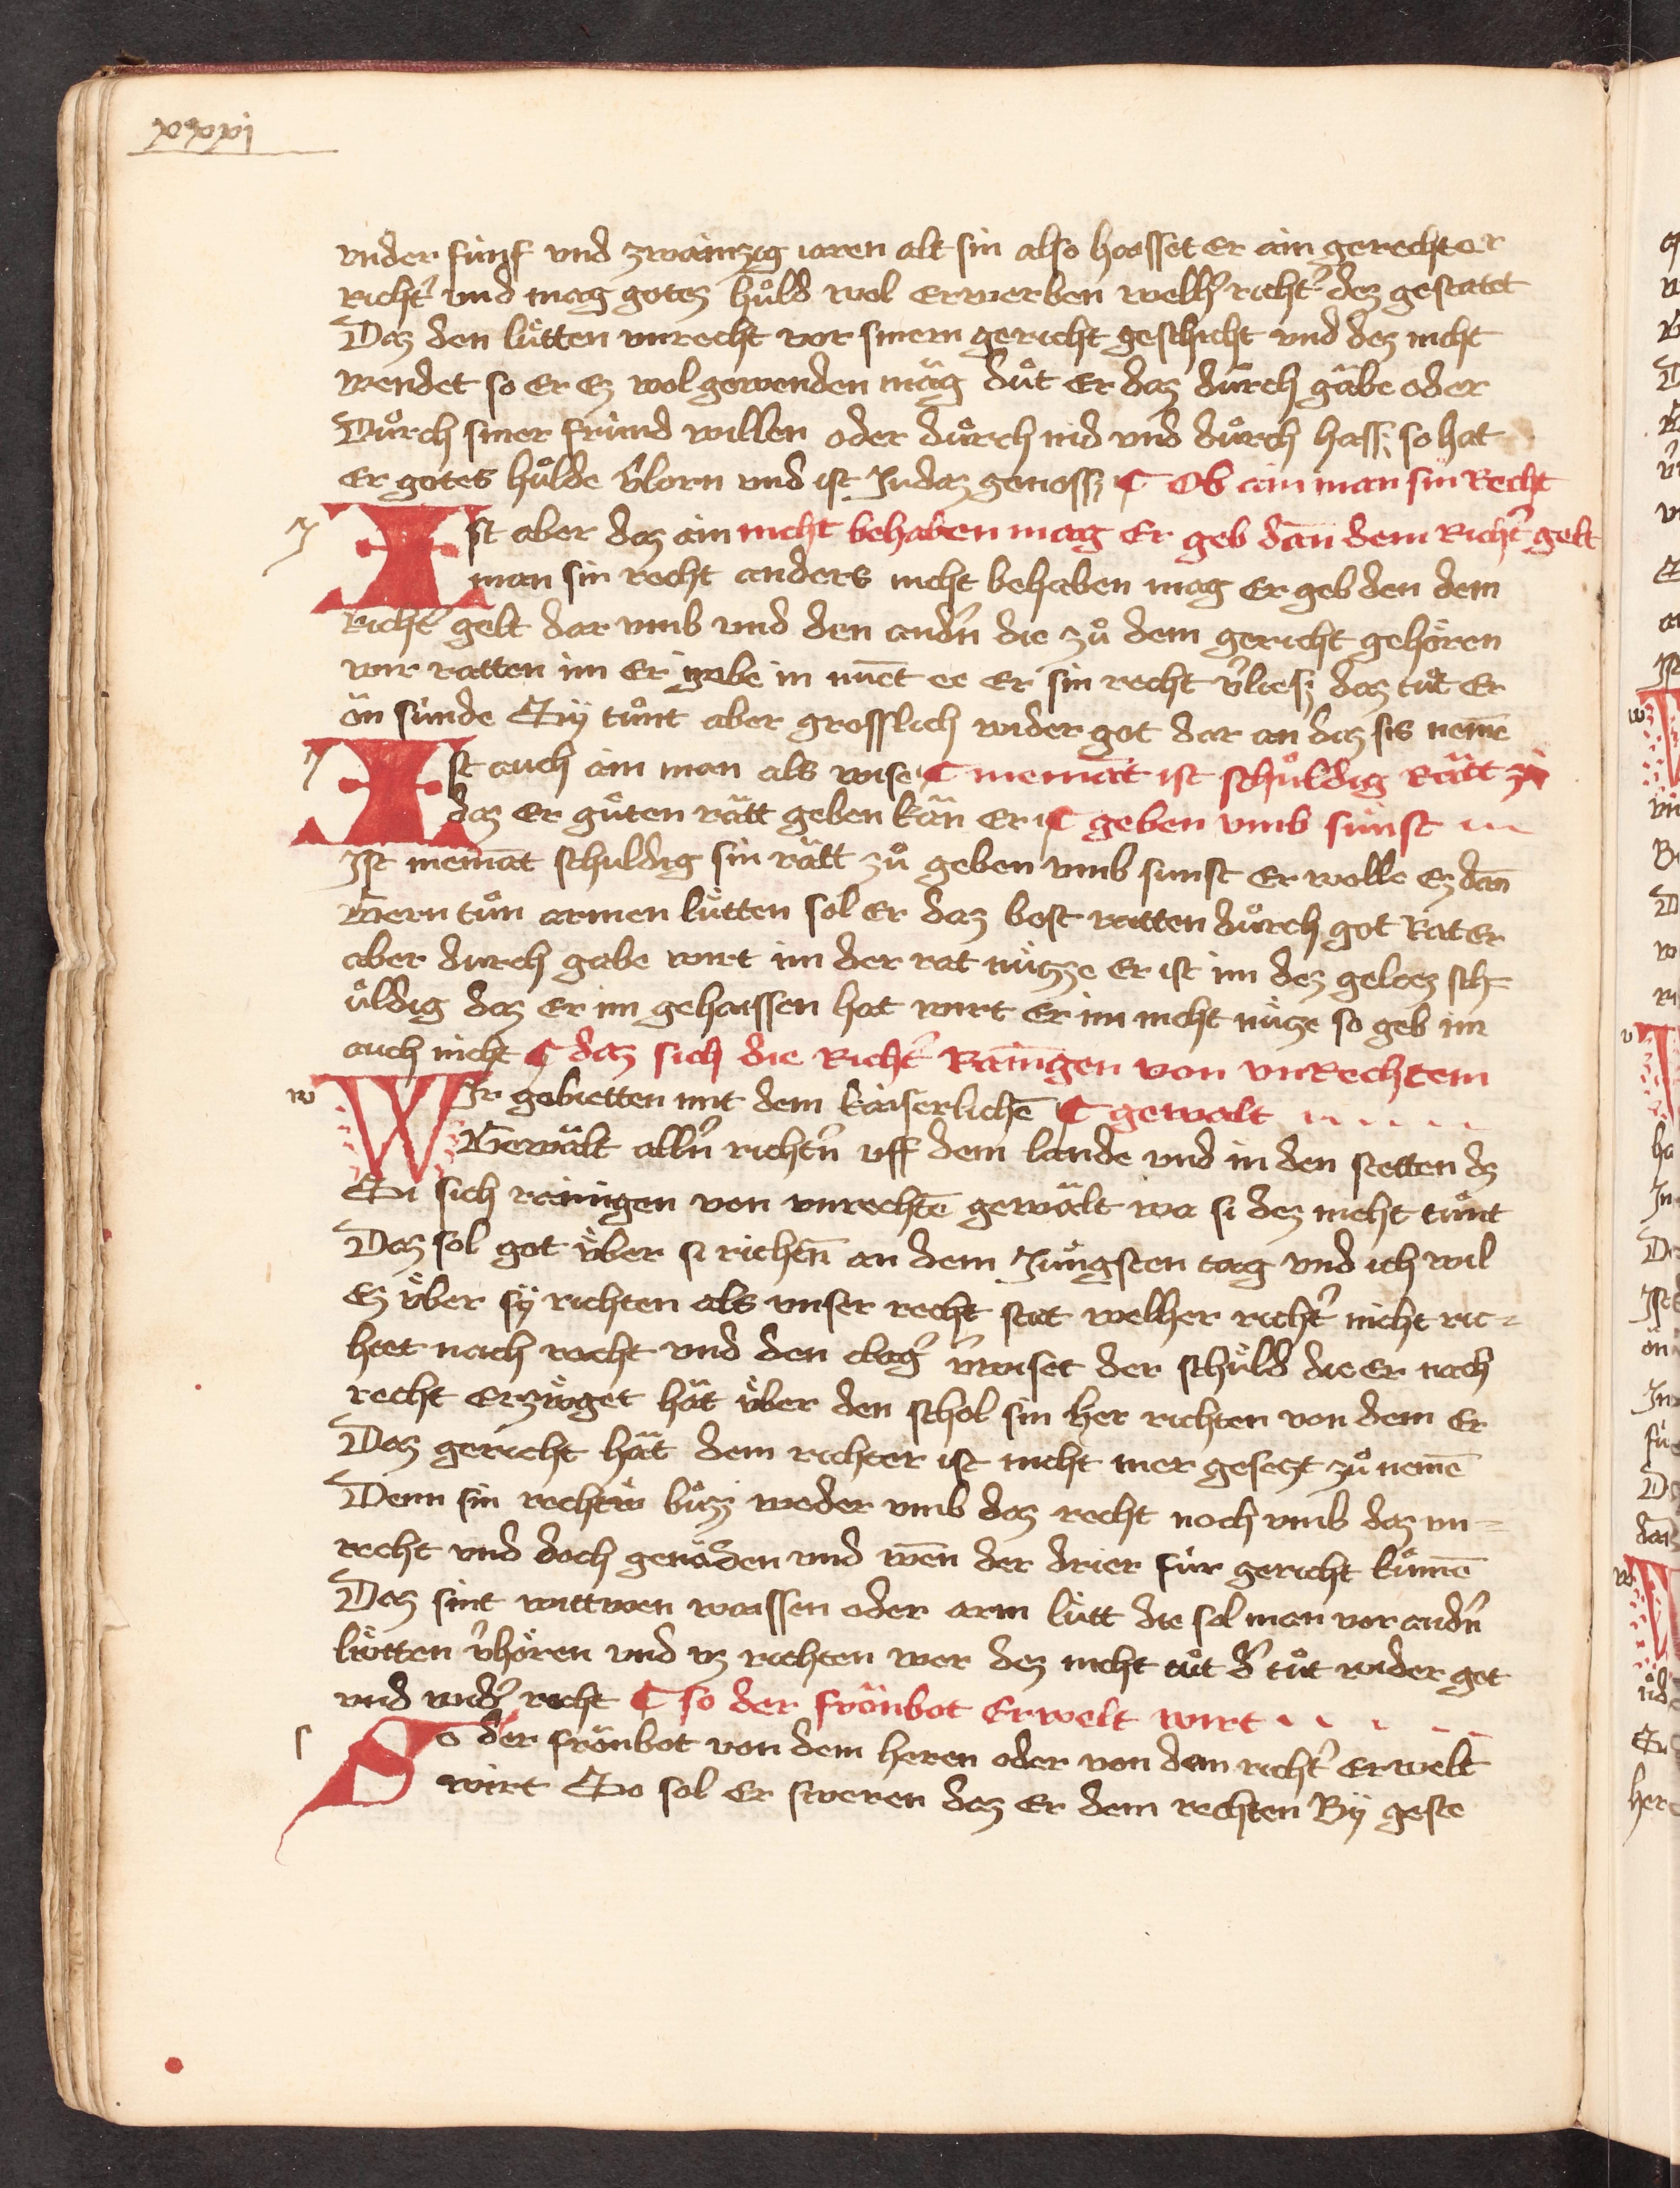 xxxvi
vnder fünf vnd zwainzig iaren alt sin also haisset er ain gerechter
richt̉ vnd mag gotez hůld wol erwerben wellh̉ richt̉ dez gestatet
Daz den lütten vnrecht vor sinem gericht geschicht vnd dez nicht
wendet so er ez wol gewenden mäg důt er daz důrch gäbe oder
Důrch siner fründ willen oder důrch nid vnd důrch hass so hat
er gotes hůlde v̉lorn vnd ist Judaz genoss ¶ Ob ain man sin Recht
Ist aber daz ain nicht behaben mag er geb dan̄ dem Richt̉ gelt
man sin recht anders nicht behaben mag er geb den dem
Richt̉ gelt dar vmb vnd den andn̉ die zů dem gericht gehören
wir ratten im er gebe in miet ee er sin recht v̉lies daz tůt er
än sünde Sÿ tůnt aber grosslich wider got dar an daz sis nemē
Ist auch ain man als wise ¶ nieman̄t ist schůldig Rätt zů
daz er gůten rätt geben kän er ¶ geben vmb sünst
Ist nieman̄t schuldig sin rätt zů geben vmb sunst er wolle ez dan̄
Gern tůn armen lütten sol er daz best ratten důrch got Rat er
aber durch gabe wirt im der rat nützze er ist im dez geltez sch=
ůldig daz er im gehaissen hat wirt er im nicht nütze so geb im
auch nicht ¶ daz sich die Richt̉ Rainigen von vnRechtem
Wir gebietten mit dem kaiserlichē ¶ gewalt
Gewält alln̉ richtn̉ vff dem lande vnd in den stetten dz
Si sich rainigen von vnrechtē gewält wa si dez nicht tůnt
Daz sol got über si richtn̄ an dem Jüngsten tag vnd ich wil
Ez über sÿ richten als vnser recht stat welher richt̉ nicht ric=
htet nach recht vnd den clag̉ v̉wiset der schůld die er nach
recht erzüget hät über den schol sin her richten von dem er
Daz gericht hät dem richter ist nicht mer gesetzt zů nemē
Denn sin rechtü bůzz weder vmb daz recht noch vmb daz vn=
recht vnd doch genäden vnd wen̄ der drier für gericht kumē
Daz sint wittwen waissen oder arm lütt die sol man vor andn̉
lütten v̉hören vnd vz richten wer dez nicht tůt d̉ tůt wider got
vnd wid̉ recht ¶ so der frönbot Erwelt wirt
So der frönbot von dem heren oder von dem richt̉ erwelt
wirt So sol er sweren daz er dem rechten Bÿ geste